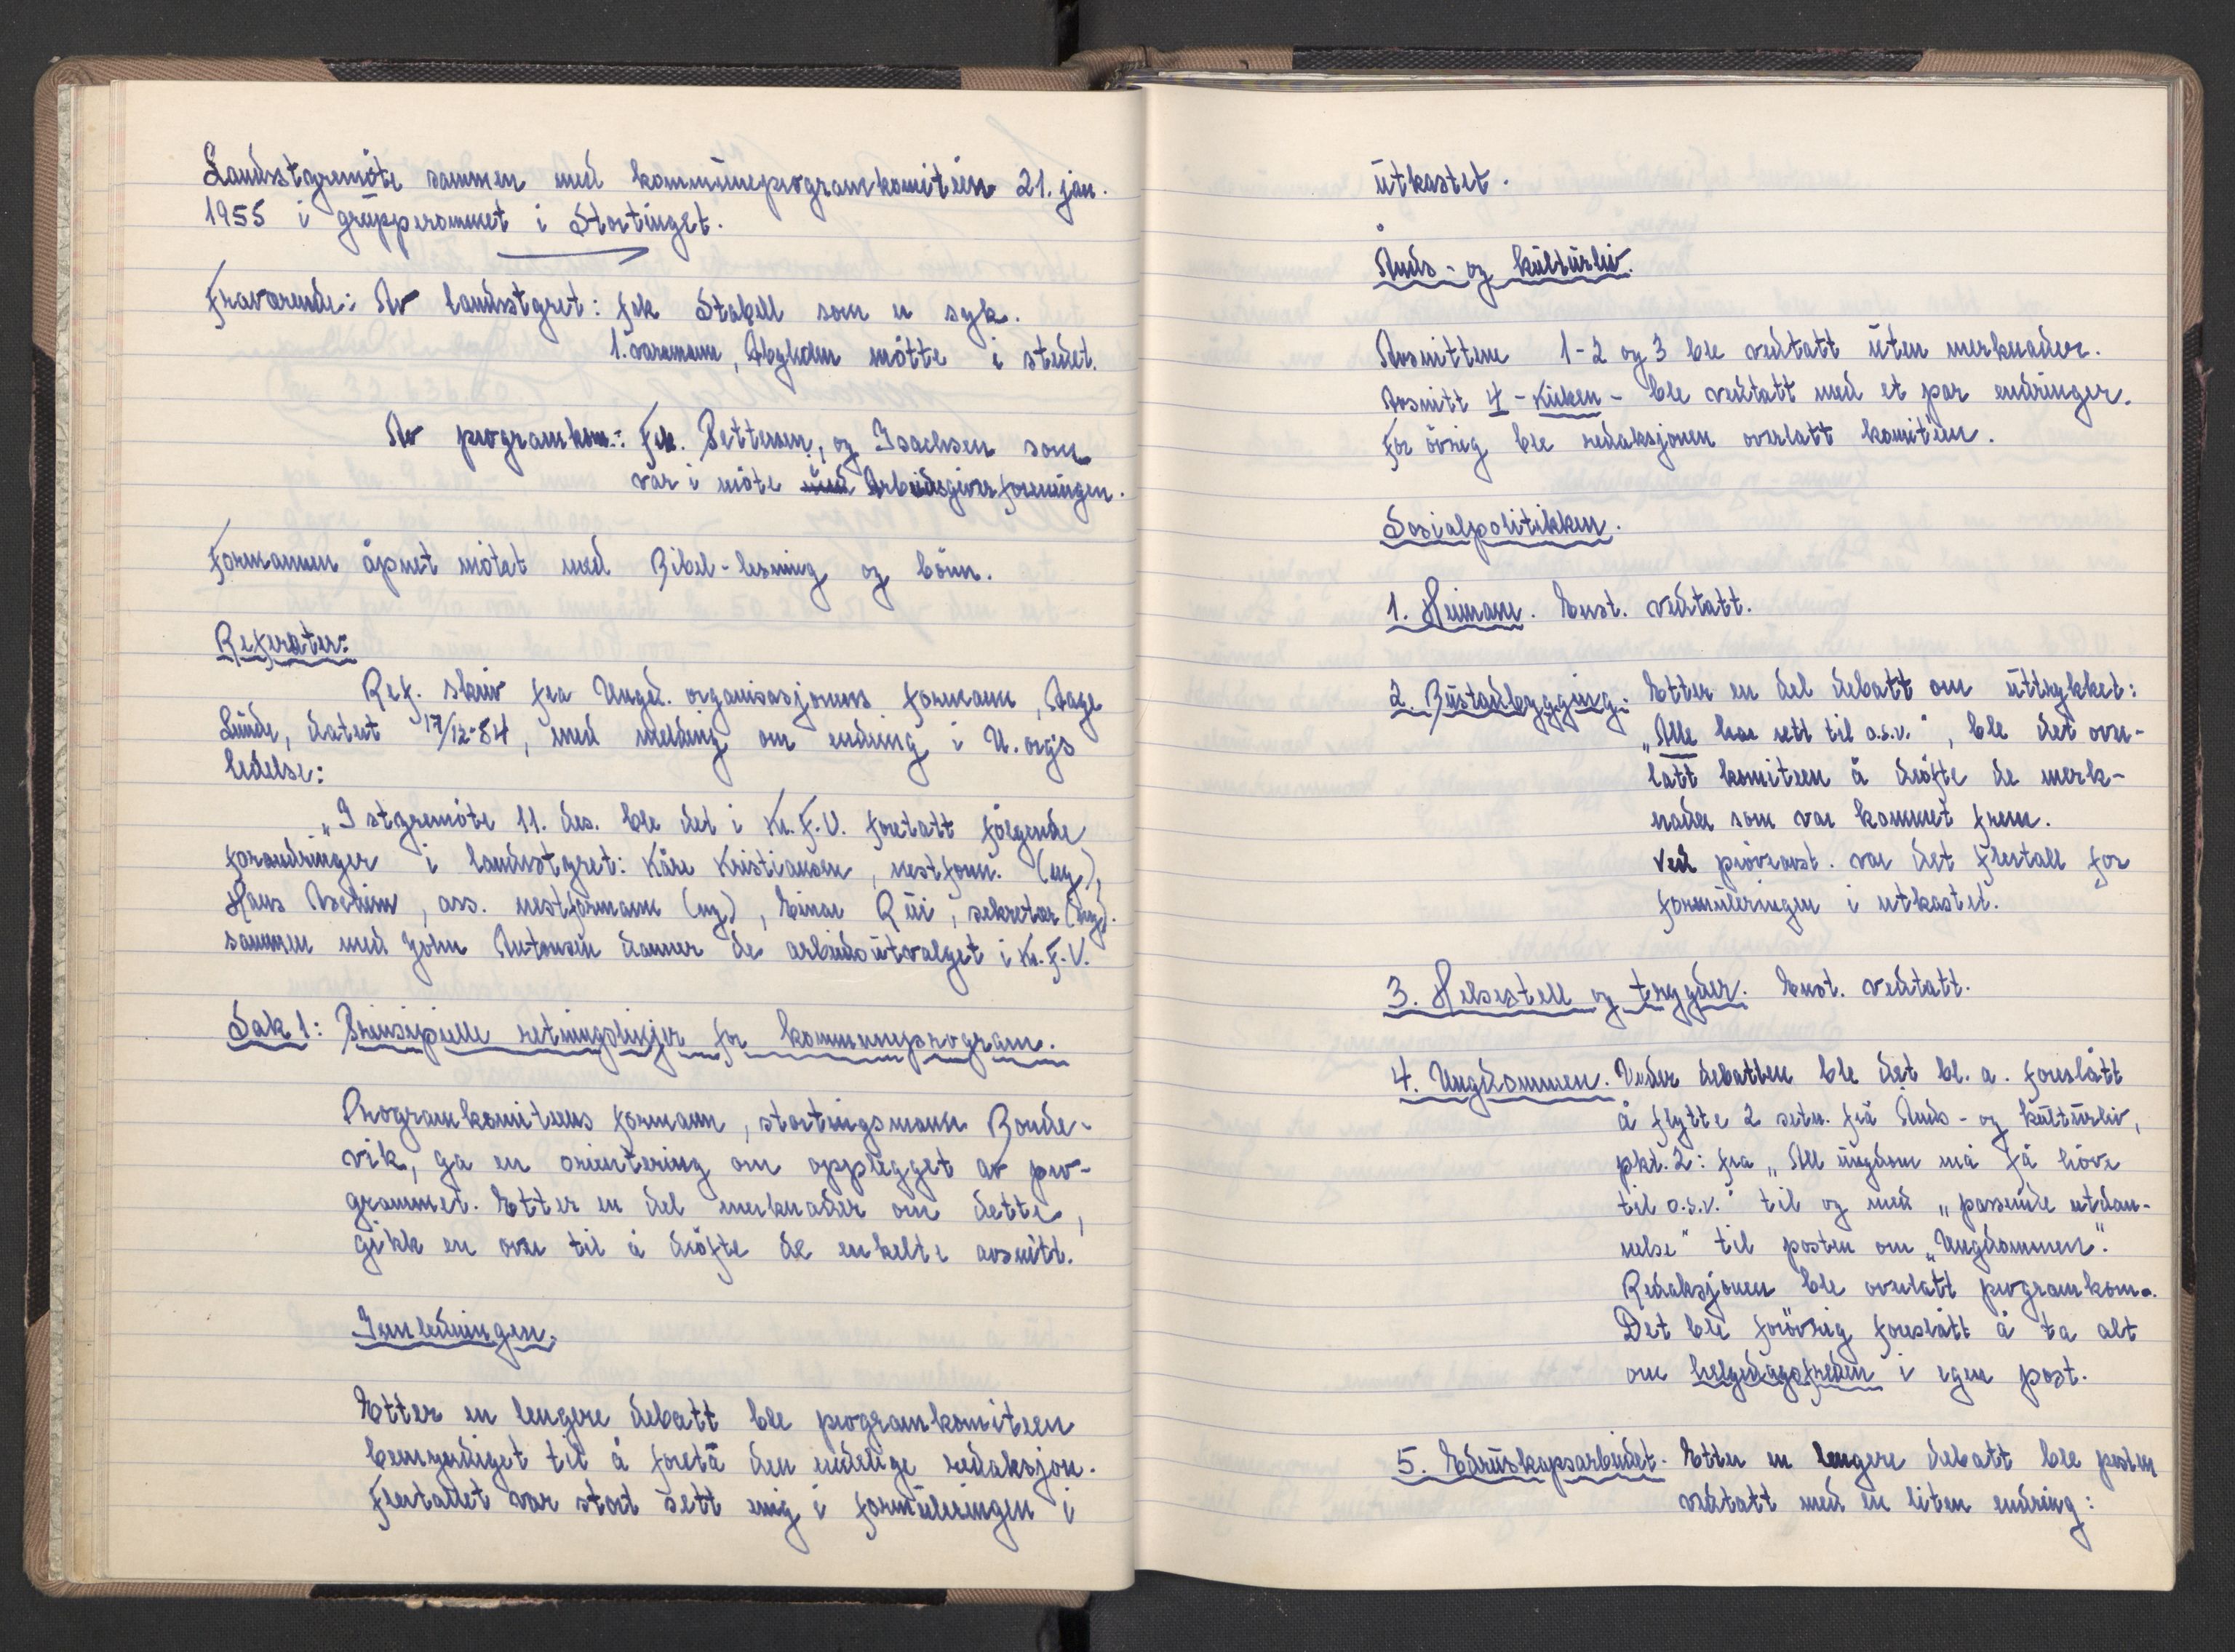 Landsstyremöte sammen med kommuneprogramkomitéen 21. jan.
1955 i grupperommet i Stortinget.
Fraværende: Av landsstyret: frk Stabell som er syk.
1. varamann, Abyholm mötte i stedet.
Av programkom.: Frk. Pettersen, og Isachsen som
var i möte med Arbeidsgiverforeningen.
Formannen åpnet mötet med Bibel-lesning og bönn.
Referater:
Ref. skriv fra Ungd. organisasjonens formann, Aage
Lunde, datert 17/12-54, med melding om endring i U. org's
ledelse:
„I styremöte 11. des. ble det i Kr.F.U. foretatt fölgende
forandringer i landsstyret: Kåre Kristiansen, nestform. (ny),
Hans , ass. nestformann (ny), Einar , sekretær (ny).
sammen med John Antonsen danner de arbeidsutvalget i Kr.F.U.
Sak 1: Prinsipielle retningslinjer for kommuneprogram.
Programkomiteens formann, stortingsmann Bonde-
vik, ga en orientering om opplegget av pro-
grammet. Etter en del merknader om dette,
gikk en over til å dröfte de enkelte avsnitt.
Innledningen.
Etter en lengere debatt ble programkomiteen
bemyndiget til å foreta den endelige redaksjon.
Flertallet var stort sett enig i formuleringen i
utkastet.
Ånds- og kulturliv.
Avsnittene 1-2 og 3 ble vedtatt uten merknader.
Avsnitt 4 - Kirken - ble vedtatt med et par endringer.
For övrig ble redaksjonen overlatt komitéen.
Sosialpolitikken.
1. Heimane. Enst. vedtatt.
2. Bustadbygging. Etter en del debatt om uttrykket:
„Alle har rett til o.s.v.", ble det over-
latt komiteen å dröfte de merk-
nader som var kommet frem.
Ved pröveavst. var det flertall for
formuleringen i utkastet.
3. Helsestell og trygder. Enst. vedtatt.
4. Ungdommen. Under debatten ble det bl. a. foreslått
å flytte 2 setn. frå Ånds- og kulturliv,
pkt. 2: fra „All ungdom må få höve
til o.s.v." til og med „passende utdan-
nelse" til posten om „Ungdommen".
Redaksjonen ble overlatt programkom.
Det ble forövrig foreslått å ta alt
om helgedagsfreden i egen post.
5. Edruskapsarbeidet. Etter en lengere debatt ble posten
vedtatt med en liten endring: